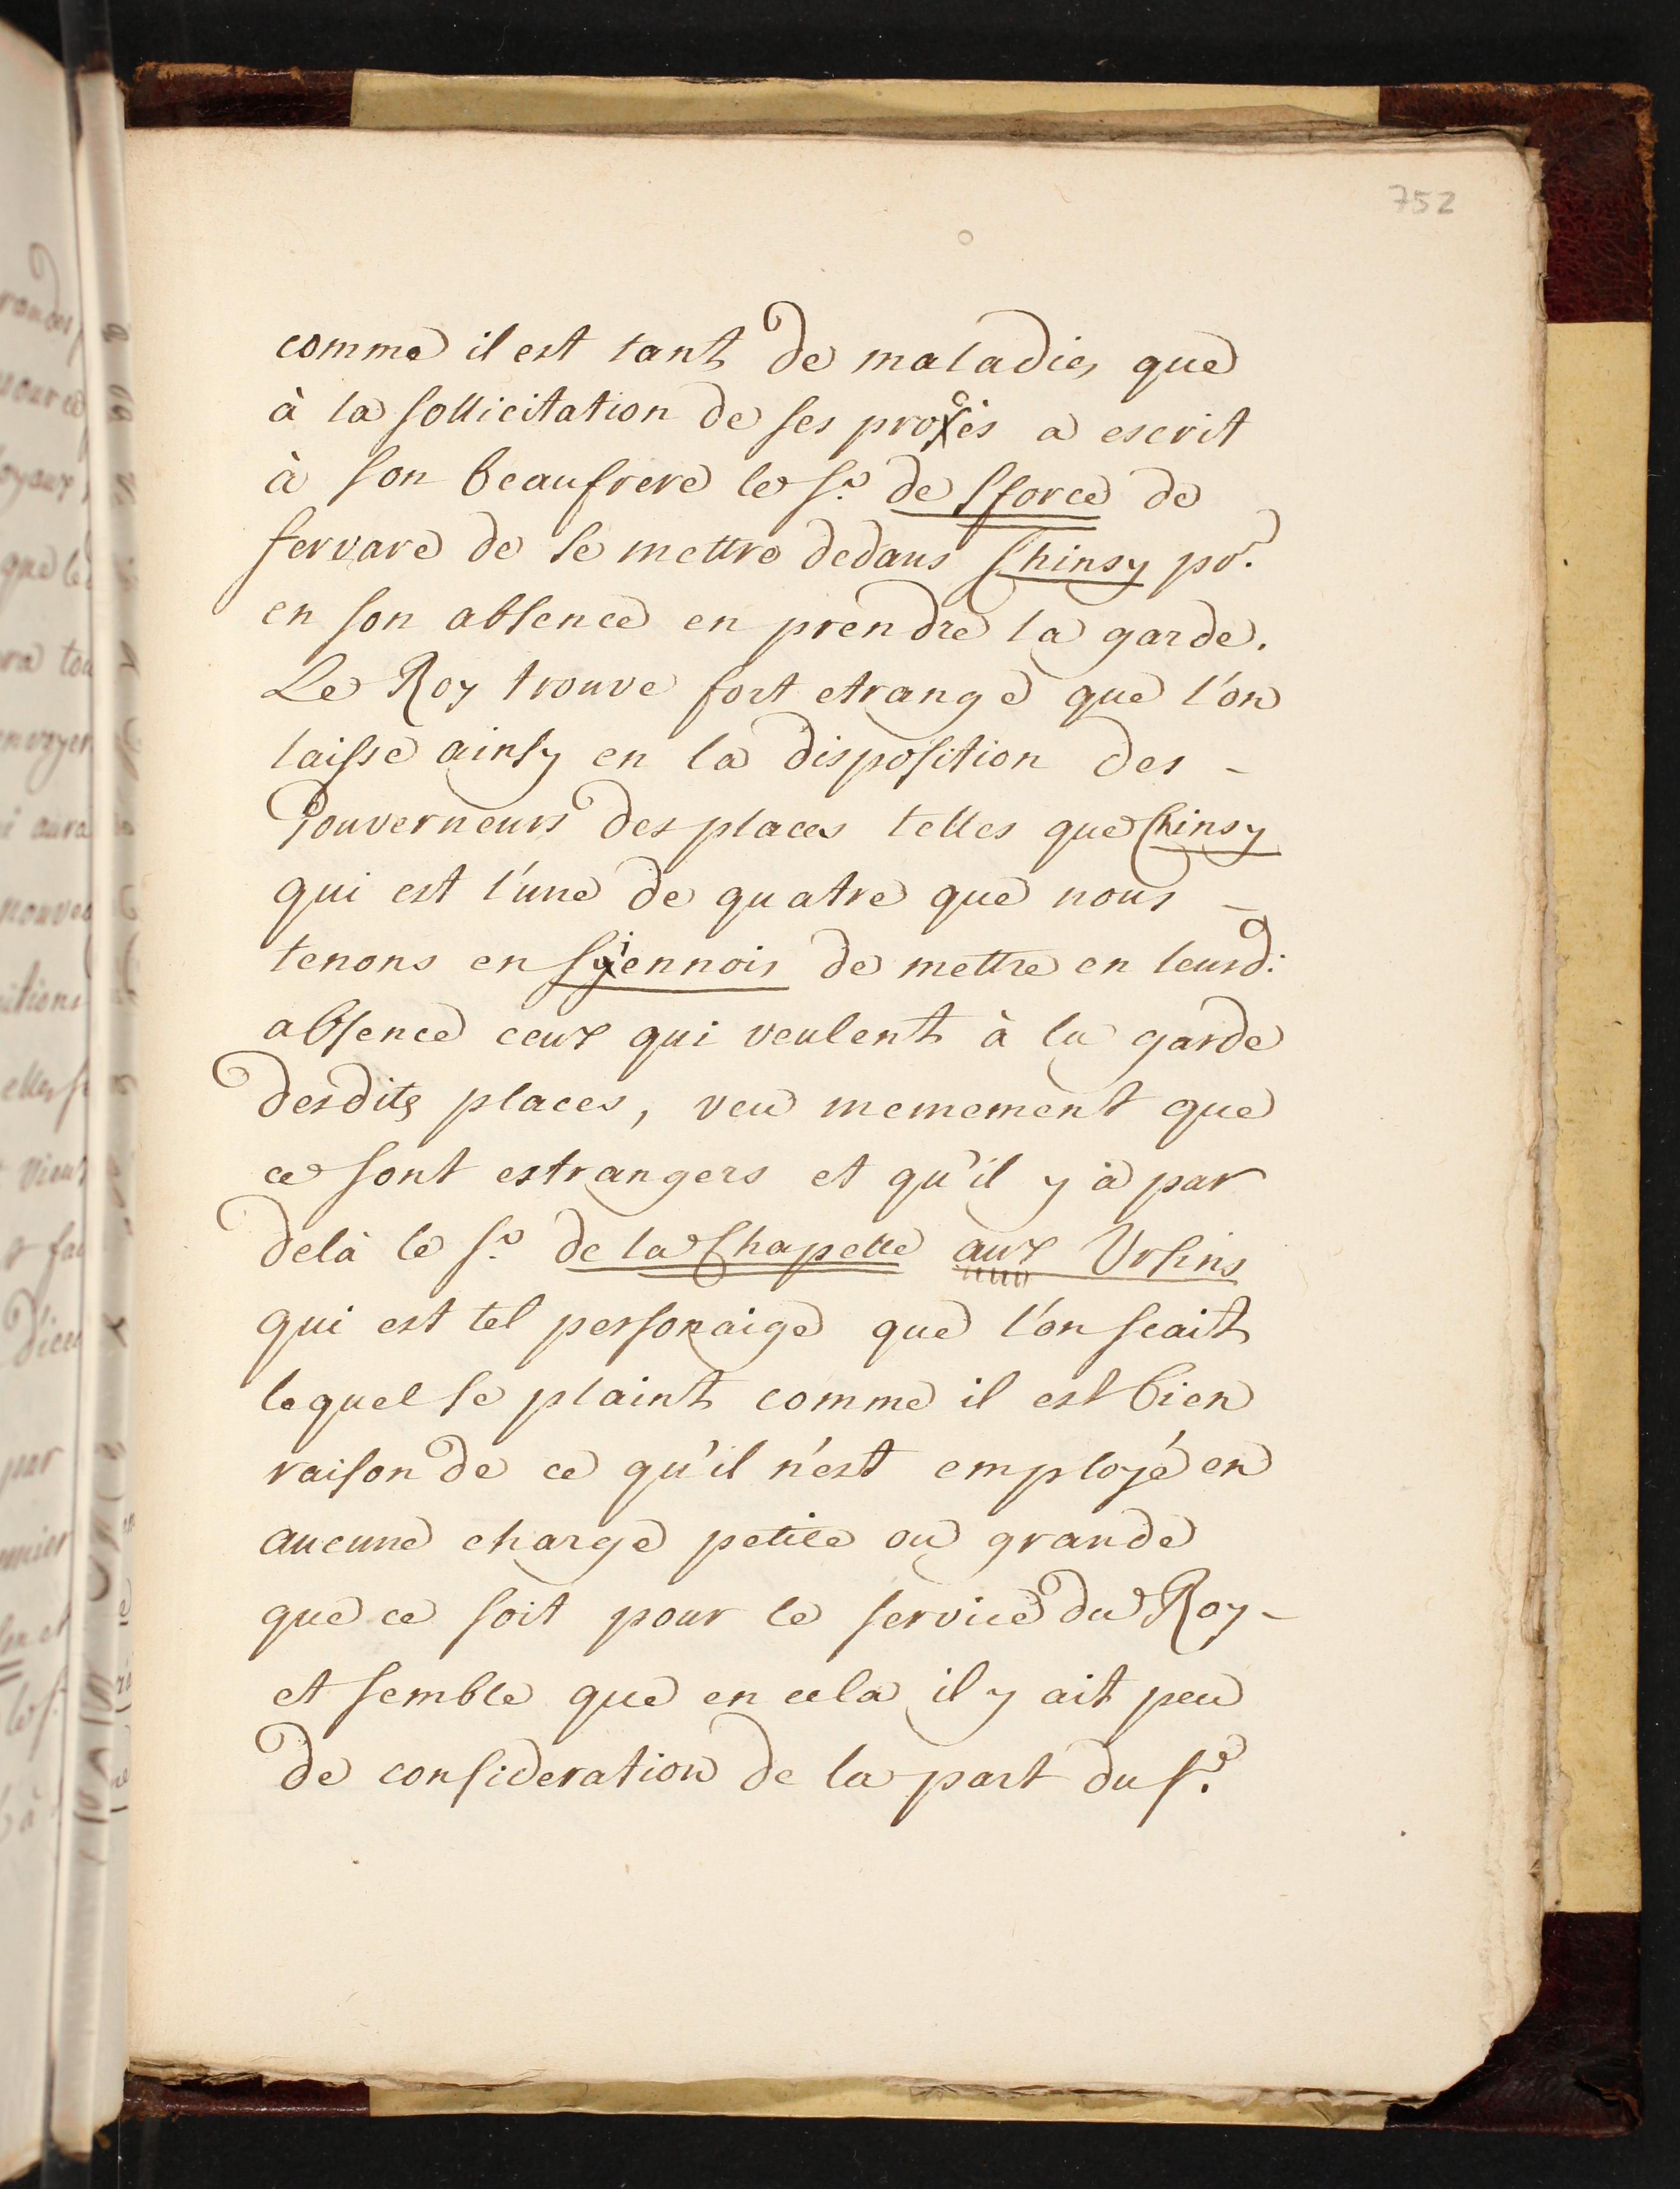 752
comme il est tant de maladies que
à la sollicitation de ses procès a escrit
à son beaufrere le Sr. de Sforce de
ferrare de se mettre dedans Chinsy por.
en son absence en prendre la garde.
Le Roy trouve fort etrange que l'on
laisse ainsy en la disposition des -
Gouverneurs des places telles que Chinsy
qui est l'une de quatre que nous -
tenons en Siennois de mettre en leurd:
absence ceux qui veulent à la garde
desdits places, veu memement que
ce sont estrangers et qu'il y a par
delà le Sr. de la Chapelle aux Ursins
qui est tel personaige que l'on scait
lequel se plaint comme il est bien
raison de ce qu'il n'est employé en
aucune charge petite ou grande
que ce soit pour le service du Roy -
et semble que en cela il y ait peu
de consideration de la part du Sr.